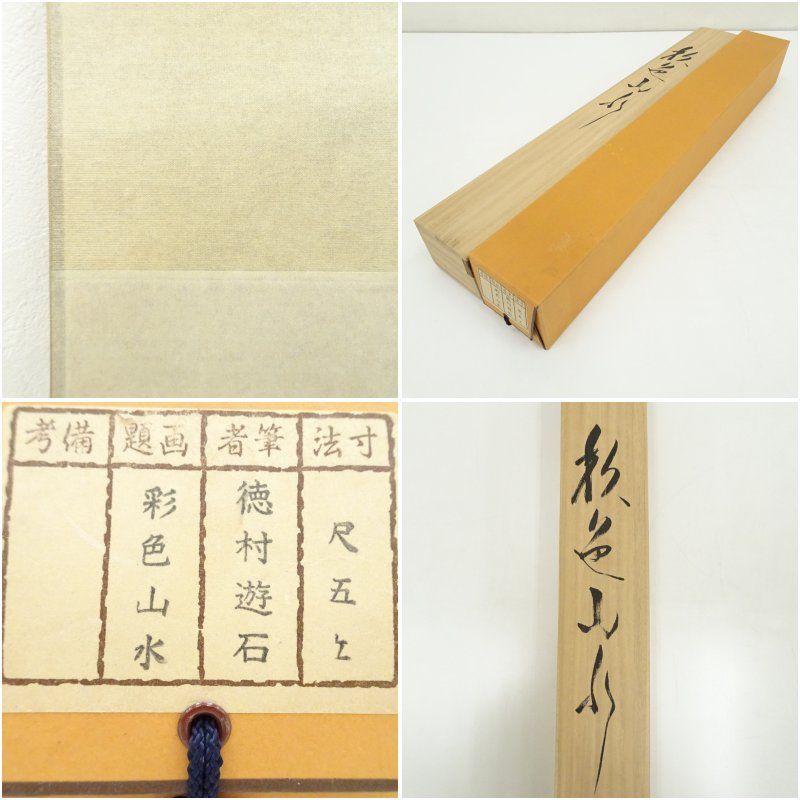 彩色山水
寸法
筆者
画題
備考
尺五上
徳村遊石
彩色山水
彩色山水